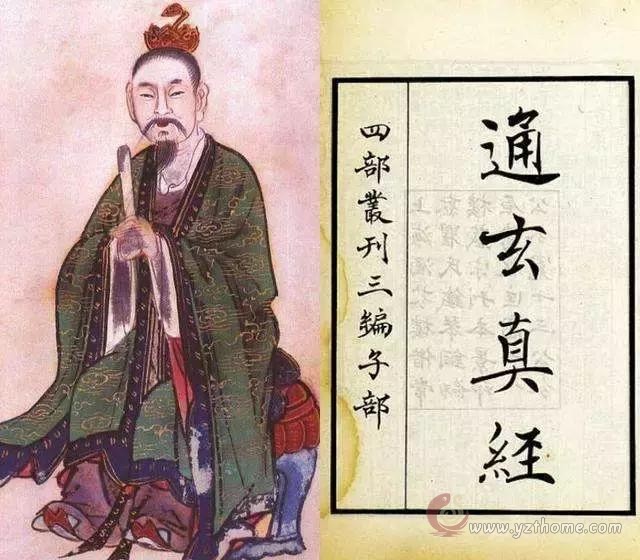 通玄真経
四部叢刊三編子部
www.yzthome.com